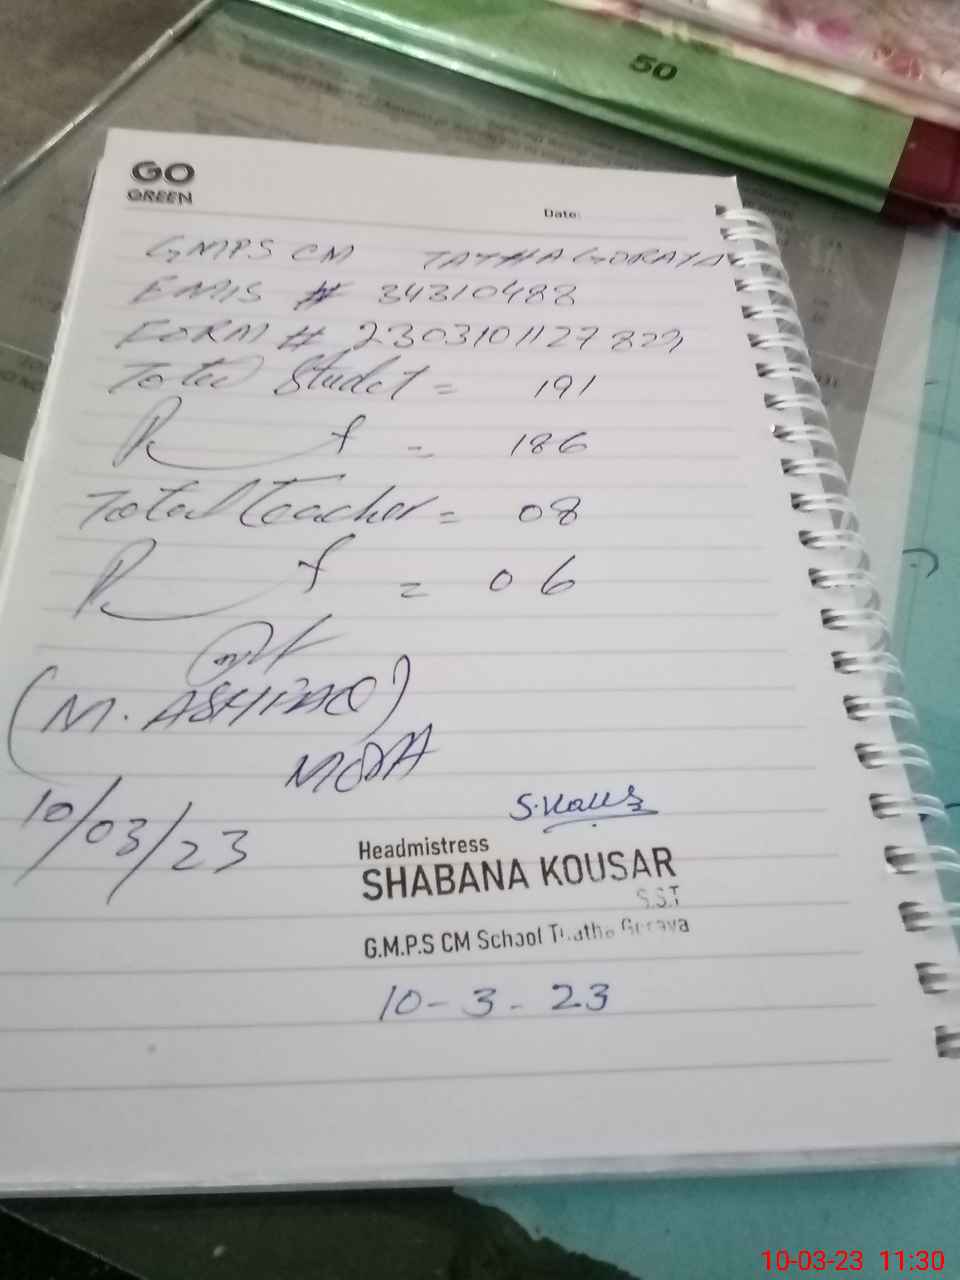 50
GO
GREEN
Date:
GMPS CM TATHA GORAYA
EMIS # 34310488
FORM #
Total Student = 191
P t = 186
Total teacher = 08
P t = 06
(M. ASHFAQ)
MEA
10/03/23
Headmistress
SHABANA KOUSAR
S.S.T
G.M.P.S CM School Thatha Goraya
10-3-23
10-03-23 11:30